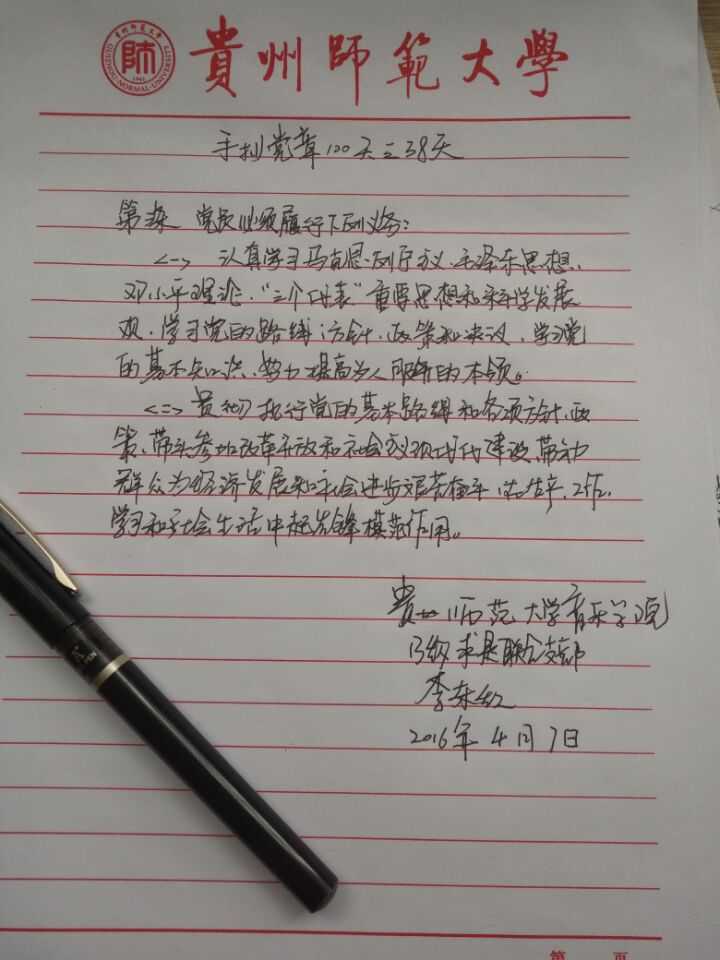 貴州師範大學
貴州師範大學
GUIZHOU NORMAL UNIVERSITY
1941
手抄党章100天之38天
第三条 党员必须履行下列义务:
<一> 认真学习马克思列宁主义、毛泽东思想、
邓小平理论、“三个代表”重要思想和科学发展
观,学习党的路线、方针、政策和决议,学习党
的基本知识,努力提高为人服务的本领。
<二> 贯彻执行党的基本路线和各项方针、政
策,带头参加改革开放和社会主义现代化建设,带动
群众为经济发展和社会进步艰苦奋斗,在生产、工作、
学习和社会生活中起先锋模范作用。
贵州师范大学音乐学院
13级求是联合支部
李东红
2016年4月7日
第 页